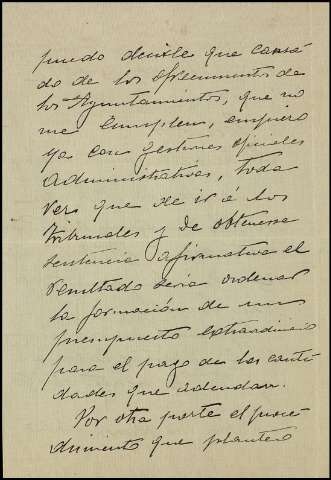 puedo decirle que cansa-
do de los ofrecimientos de
los Ayuntamientos, que no
me cumplen, empiezo
ya con gestiones oficiales
administrativas, toda
vez que de ir á los
tribunales y de obtenerse
sentencia afirmativa el
resultado seria ordenar
la formación de un
presupuesto extraordinario
para el pago de las canti-
dades que adeudan.
Por otra parte el proce-
dimiento que planteo